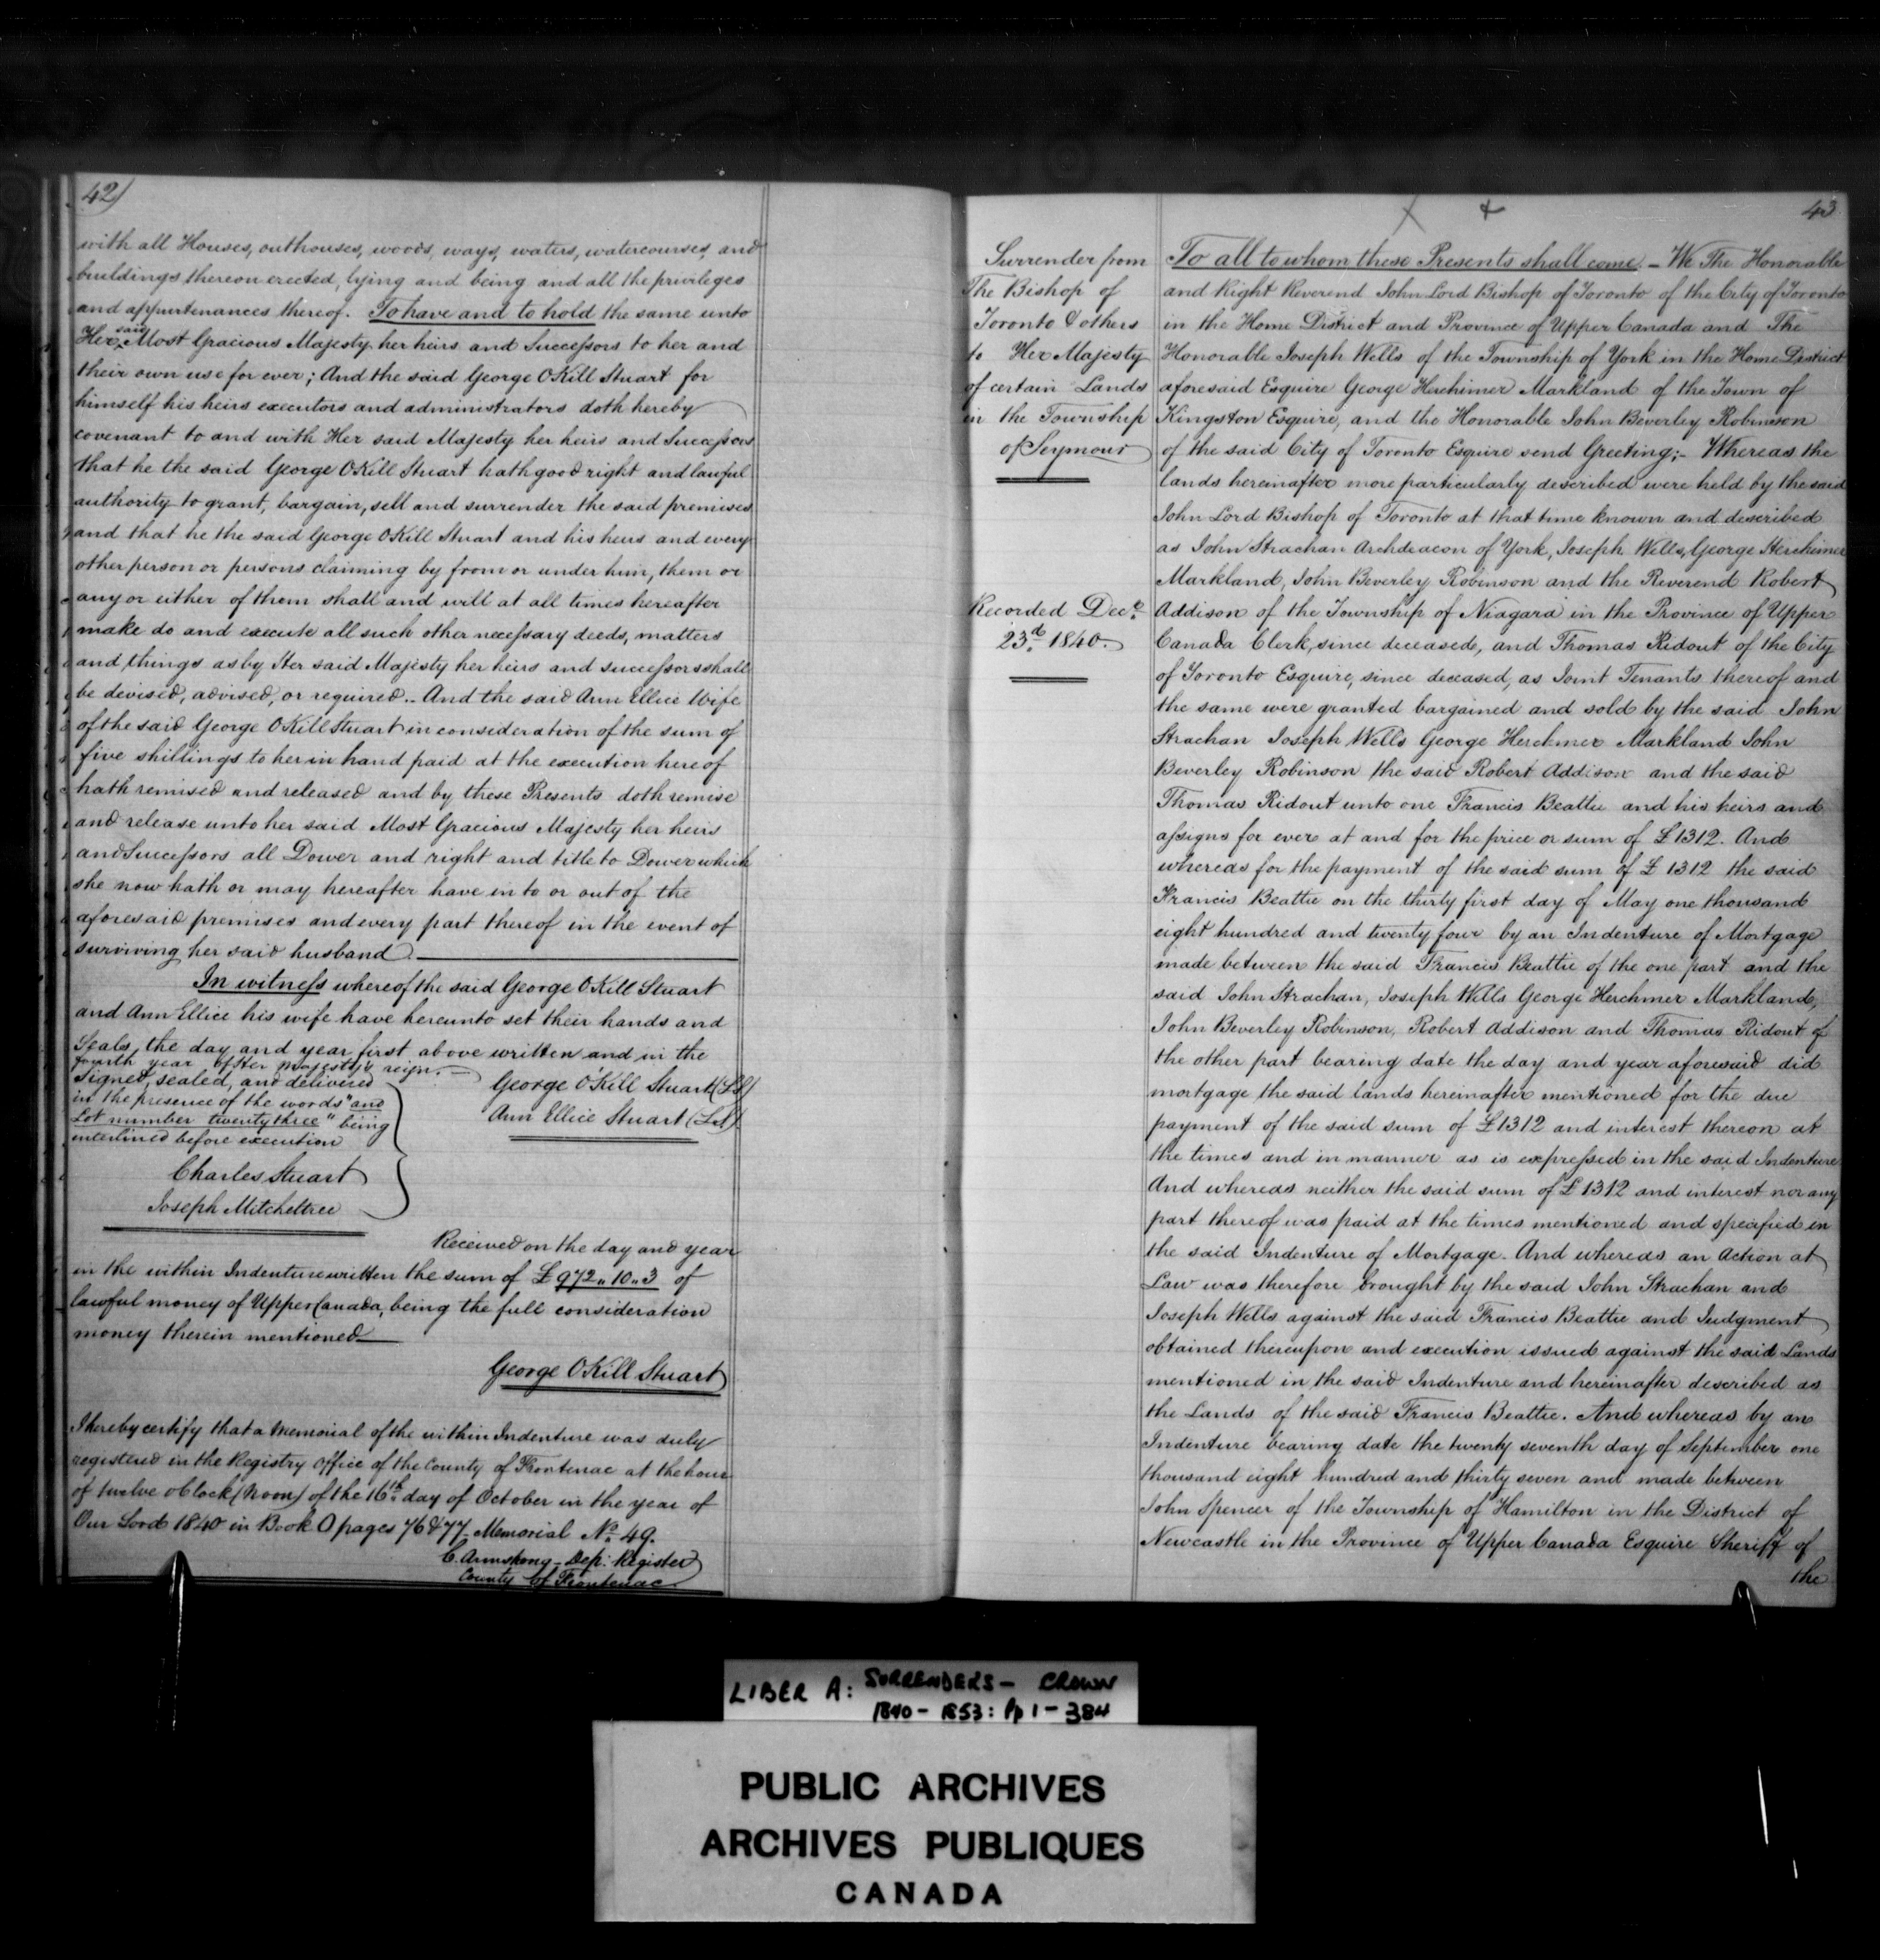 42)
with all Houses, outhouses, woods, ways, waters, watercourses, and
buildings thereon erected, lying and being and all the privileges
and appurtenances thereof. To have and to hold the same unto
Her said Most Gracious Majesty her heirs and Successors to her and
their own use for ever; And the said George OKill Stuart for
himself his heirs executors and administrators doth hereby
covenant to and with Her said Majesty her heirs and Successors
that he the said George OKill Stuart hath good right and lawful
authority to grant, bargain, sell and surrender the said premises
and that he the said George OKill Stuart and his heirs and every
other person or persons claiming by from or under him, them or
any or either of them shall and will at all times hereafter
make do and execute all such other necessary deeds, matters
and things as by Her said Majesty her heirs and successors shall
be devised, advised, or required.. And the said Ann Ellice Wife
of the said George OKill Stuart in consideration of the sum of
five shillings to her in hand paid at the execution hereof
hath remised and released and by these Presents doth remise
and release unto her said Most Gracious Majesty her heirs
and Successors all Dower and right and title to Dower which
she now hath or may hereafter have in to or out of the
aforesaid premises and every part thereof in the event of
surviving her said husband
In witness whereof the said George OKill Stuart
and Ann Ellice his wife have hereunto set their hands and
Seals, the day and year first above written and in the
fourth year of Her Majesty's reign. —
Signed, sealed, and delivered
in the presence of the words "and
Lot number twenty three" being
interlined before execution
George O'Kill Stuart (LS)
Ann Ellice Stuart (LS)
Charles Stuart
Joseph Mitcheltree
Received on the day and year
in the within Indenture written the sum of £972..10..3 of
lawful money of Upper Canada, being the full consideration
money therein mentioned
George OKill Stuart
I hereby certify that a Memorial of the within Indenture was duly
registered in the Registry Office of the County of Frontenac at the hour
of twelve oClock (Noon) of the 16th day of October in the year of
Our Lord 1840 in Book O pages 76 & 77 Memorial No. 49.
C. Armstrong – Dep: Register
County of Frontenac
43
Surrender from
The Bishop of
Toronto & others
to Her Majesty
of certain Lands
in the Township
of Seymour
Recorded Decr.
23d. 1840.
To all to whom these Presents shall come. – We The Honorable
and Right Reverend John Lord Bishop of Toronto of the City of Toronto
in the Home District and Province of Upper Canada and The
Honorable Joseph Wells of the Township of York in the Home District
aforesaid Esquire George Herchimer Markland of the Town of
Kingston Esquire, and the Honorable John Beverley Robinson
of the said City of Toronto Esquire send Greeting;– Whereas the
lands hereinafter more particularly described were held by the said
John Lord Bishop of Toronto at that time known and described
as John Strachan Archdeacon of York, Joseph Wells, George Herchimer
Markland, John Beverley Robinson and the Reverend Robert
Addison of the Township of Niagara in the Province of Upper
Canada Clerk, since deceased, and Thomas Ridout of the City
of Toronto Esquire, since deceased, as Joint Tenants thereof and
the same were granted bargained and sold by the said John
Strachan Joseph Wells George Herchmer Markland John
Beverley Robinson the said Robert Addison and the said
Thomas Ridout unto one Francis Beattie and his heirs and
assigns for ever at and for the price or sum of £1312. And
whereas for the payment of the said sum of £1312 the said
Francis Beattie on the thirty first day of May one thousand
eight hundred and twenty four by an Indenture of Mortgage
made between the said Francis Beattie of the one part and the
said John Strachan, Joseph Wells George Herchmer Markland,
John Beverley Robinson, Robert Addison and Thomas Ridout of
the other part bearing date the day and year aforesaid did
mortgage the said lands hereinafter mentioned for the due
payment of the said sum of £1312 and interest thereon at
the times and in manner as is expressed in the said Indenture
And whereas neither the said sum of £1312 and interest nor any
part thereof was paid at the times mentioned and specified in
the said Indenture of Mortgage. And whereas an Action at
Law was therefore brought by the said John Strachan and
Joseph Wells against the said Francis Beattie and Judgment
obtained thereupon and execution issued against the said Lands
mentioned in the said Indenture and hereinafter described as
the Lands of the said Francis Beattie. And whereas by an
Indenture bearing date the twenty seventh day of September one
thousand eight hundred and thirty seven and made between
John Spencer of the Township of Hamilton in the District of
Newcastle in the Province of Upper Canada Esquire Sheriff of
the
LIBER A: SURRENDERS – CROWN
1840 – 1853: Pp 1 – 384
PUBLIC ARCHIVES
ARCHIVES PUBLIQUES
CANADA